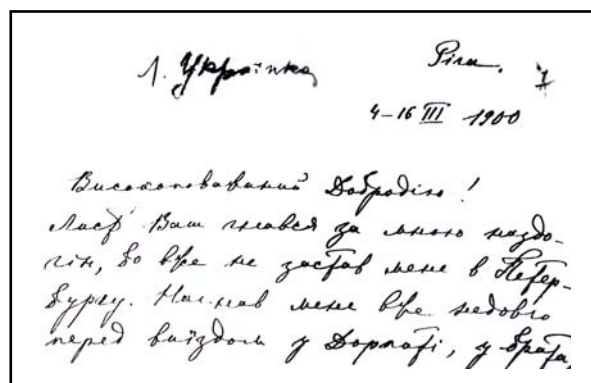 Л. Українка
Ріга.
4–16 III 1900
Високоповажаний Добродію!
Лист Ваш гнався за мною наздо-
гін, бо вже не застав мене в Петер-
бурху. Нагнав мене вже недовго
перед виїздом у Дорпаті, у брата,